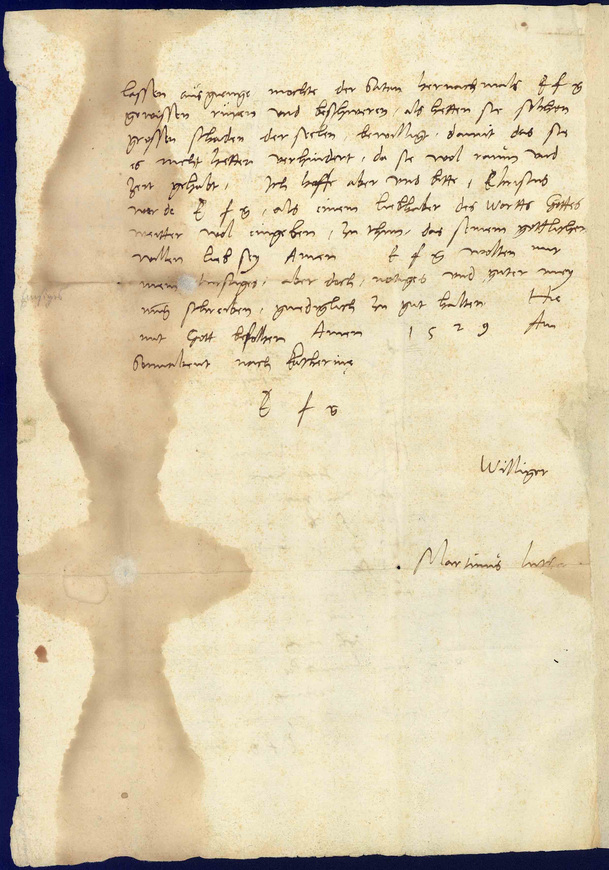 lassen ausgienge mochte der Satan hernachmals E f g
gewissen rüren und beschweren, als hetten sie solchen
grossen schaden der seelen, bewilligt, damit das sie
es nicht hetten verhindert, da sie wol raum und
zeit gehabt, Ich hoffe aber und bitte, Christus
werde E f g, als einem liebhaber des worts Gottes
weitter wol eingeben, zu thun, das seinem gottlichen
willen lieb sey Amen E f g wolten mir
mein aber doch, notiges und guter mey
nung schreiben, gnediglich zu gut halten Hie
mit Gott befolhen Amen 1529 Am
Sonnabent nach Katherine
E f g
Williger
Martinus Luther